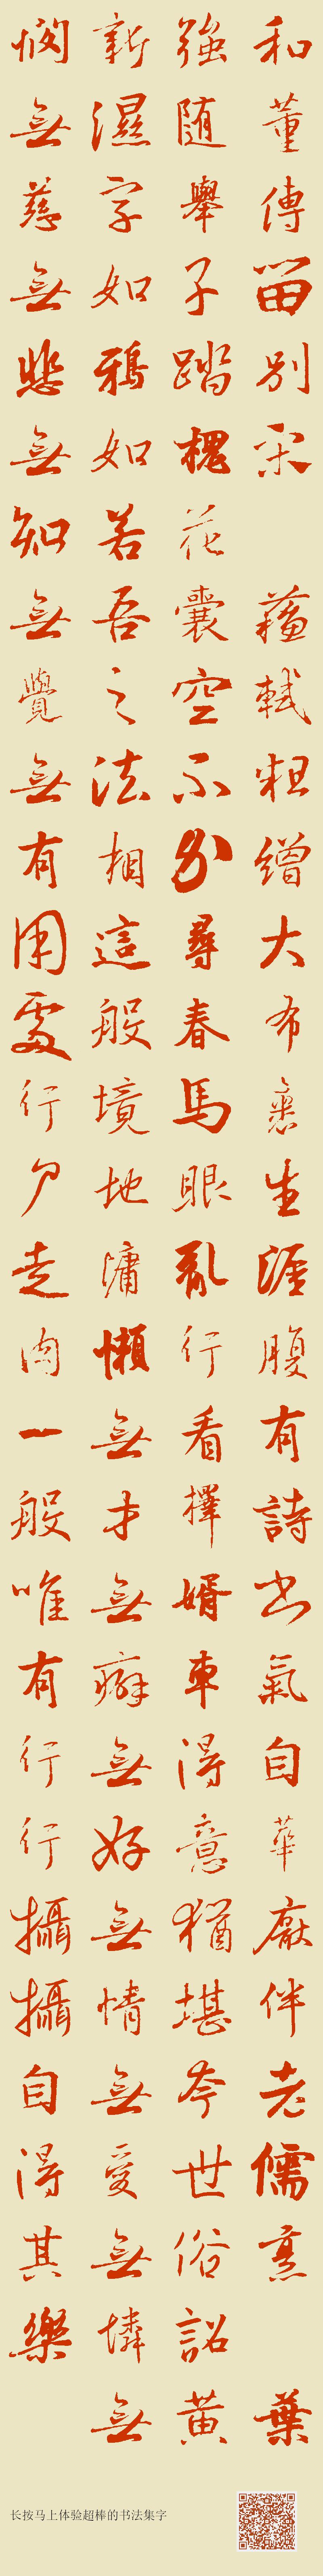 和董傳留別宋 蘓軾粗繒大布裹生涯腹有詩书氣自華厭伴老儒烹 葉
強随舉子踏槐花囊空不办尋春馬眼亂行看擇婿車得意猶堪夸世俗詔黄
新濕字如鴉如若吾之法相這般境地慵懶無才無癖無好無情無愛無憐無
憫無慈無悲無知無覺無有用處行尸走肉一般唯有行行攝攝自得其樂
长按马上体验超棒的书法集字